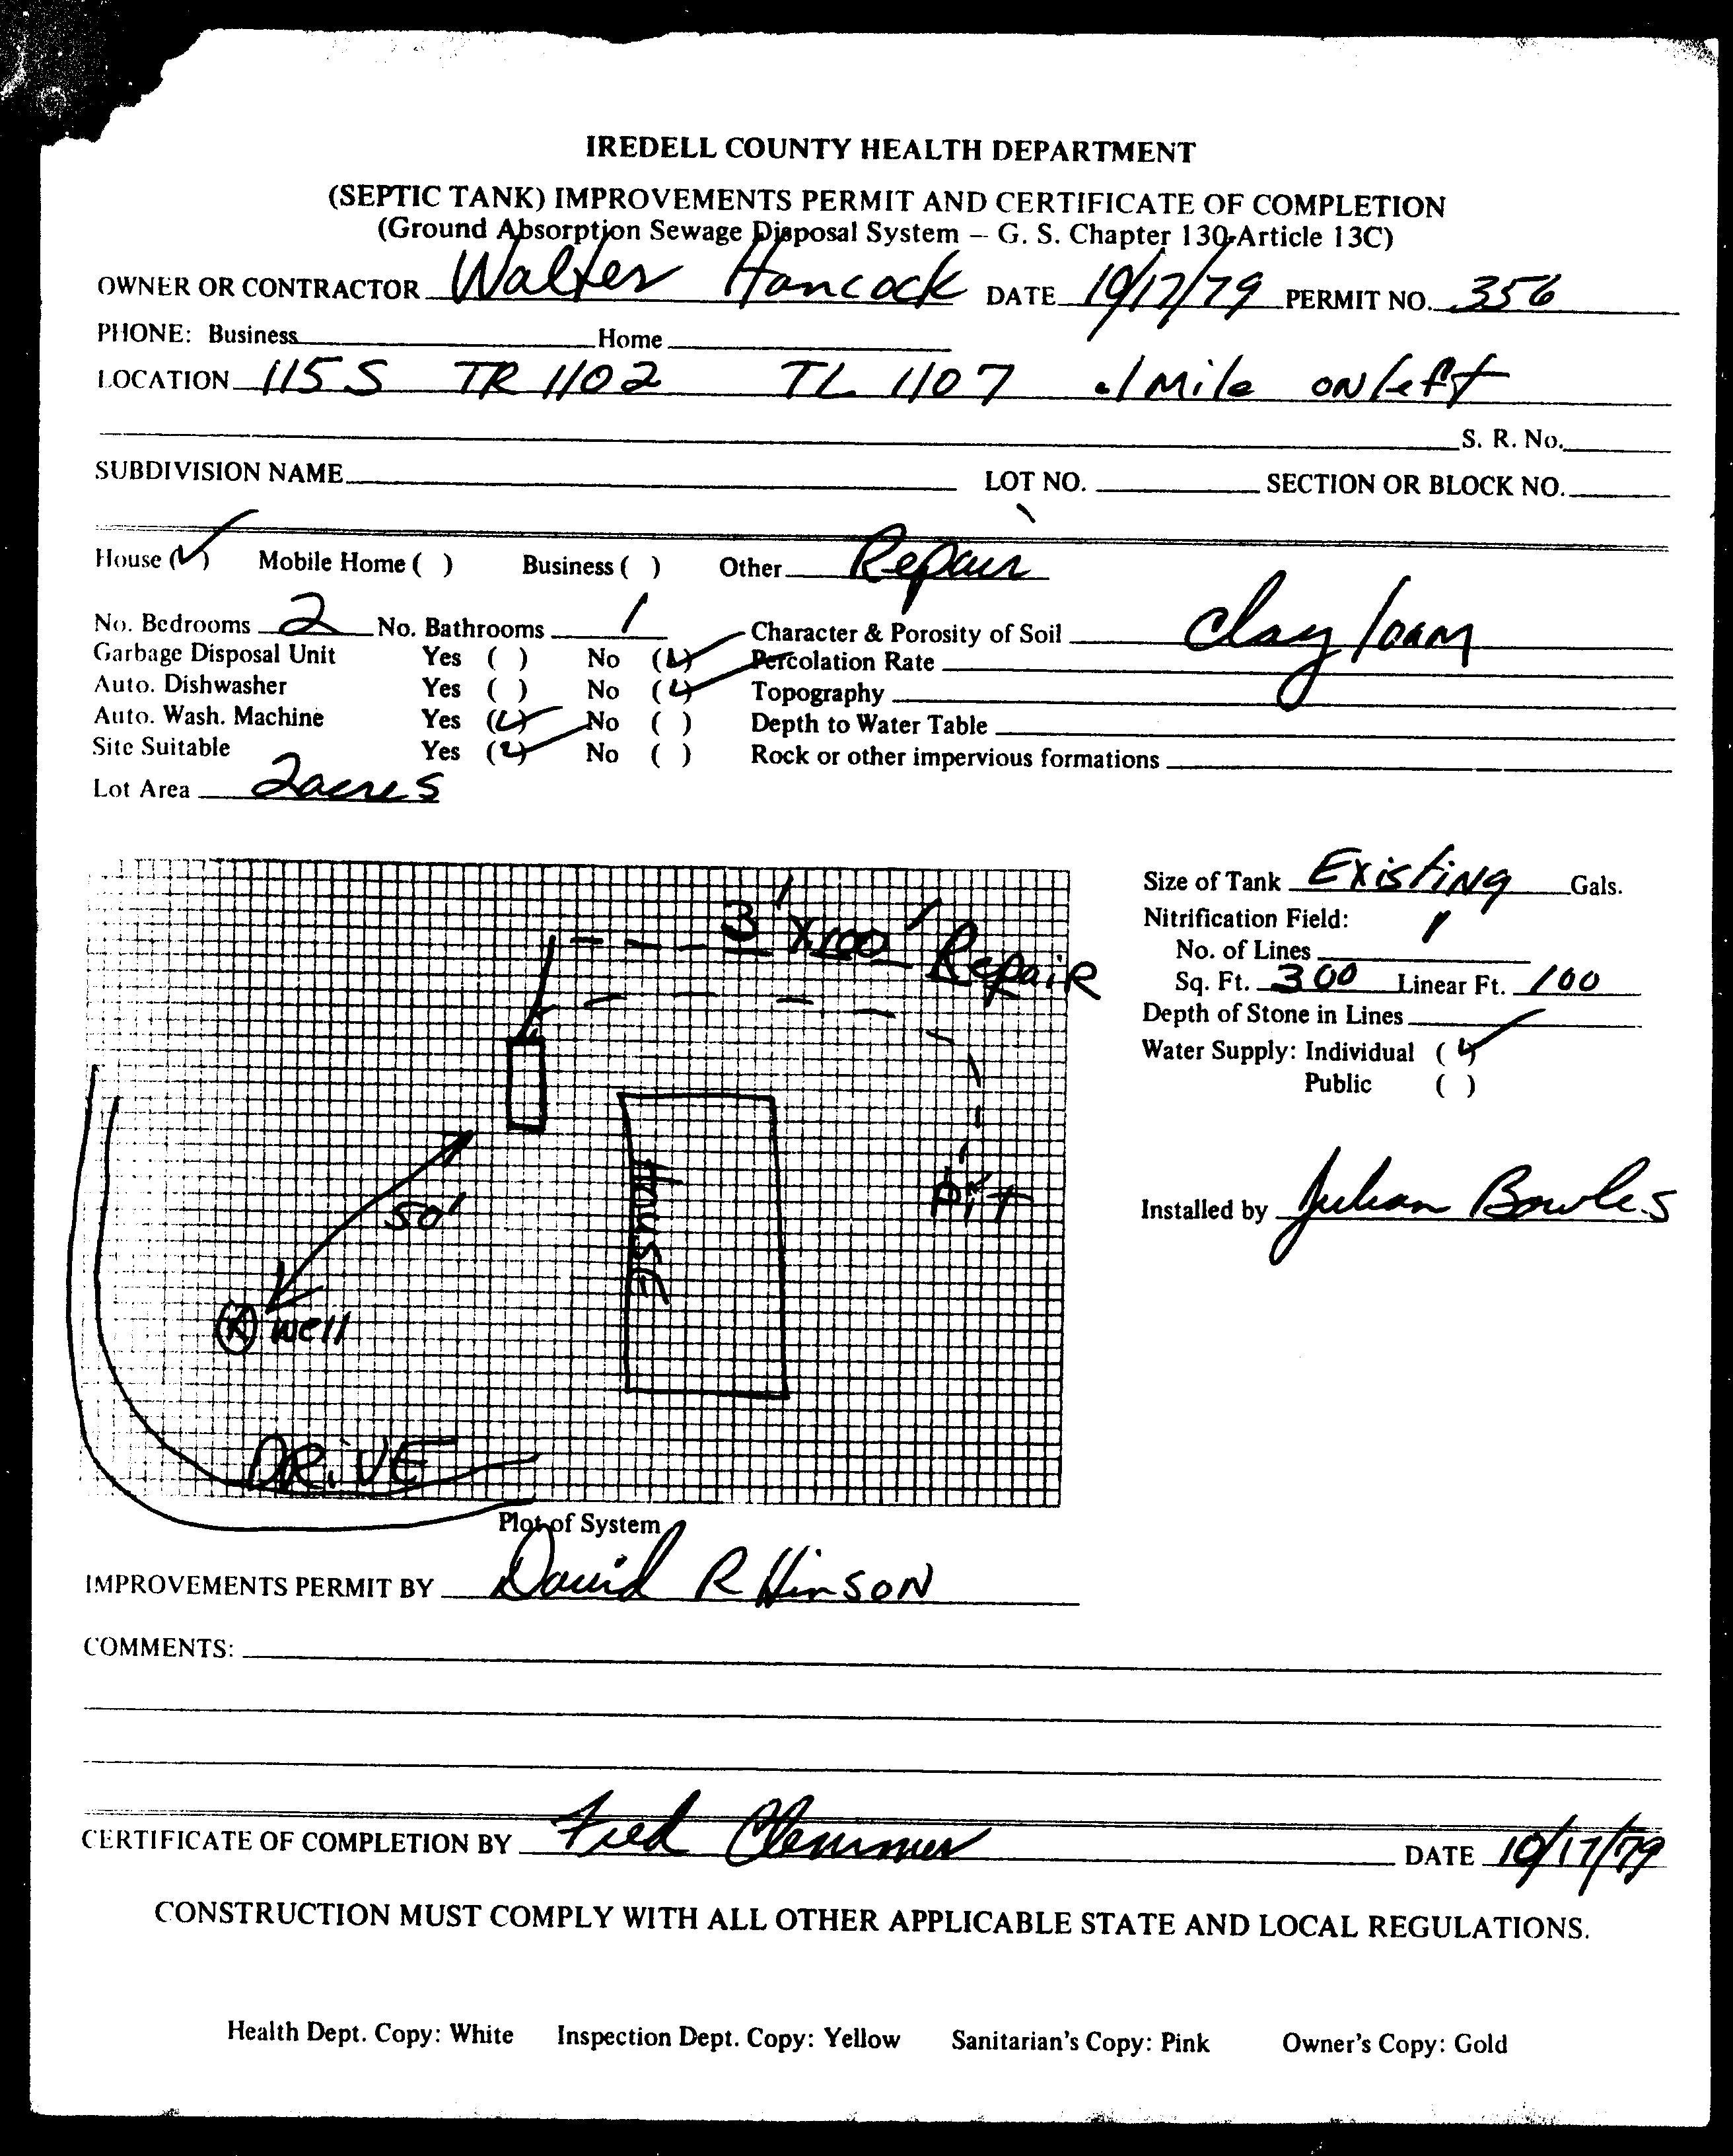 IREDELL COUNTY HEALTH DEPARTMENT
(SEPTIC TANK) IMPROVEMENTS PERMIT AND CERTIFICATE OF COMPLETION
(Ground Absorption Sewage Disposal System – G. S. Chapter 130-Article 13C)
OWNER OR CONTRACTOR Walter Hancock DATE 10/17/79 PERMIT NO. 356
PHONE: Business Home
LOCATION 115 S TR 1102 TL 1107 .1 Mile on left
S. R. No.
SUBDIVISION NAME LOT NO. SECTION OR BLOCK NO.
House (✓) Mobile Home ( ) Business ( ) Other Repair
No. Bedrooms 2 No. Bathrooms 1 Character & Porosity of Soil clay loam
Garbage Disposal Unit Yes ( ) No (✓) Percolation Rate
Auto. Dishwasher Yes ( ) No (✓) Topography
Auto. Wash. Machine Yes (✓) No ( ) Depth to Water Table
Site Suitable Yes (✓) No ( ) Rock or other impervious formations
Lot Area 2 acres
Size of Tank Existing Gals.
Nitrification Field:
No. of Lines 1
Sq. Ft. 300 Linear Ft. 100
Depth of Stone in Lines
Water Supply: Individual (✓)
Public ( )
Installed by Julian Bowles
3' x 100' Repair
House
Pit
50'
well
DRiVE
Plot of System
IMPROVEMENTS PERMIT BY David R Hinson
COMMENTS:
CERTIFICATE OF COMPLETION BY Fred Clemmer DATE 10/17/79
CONSTRUCTION MUST COMPLY WITH ALL OTHER APPLICABLE STATE AND LOCAL REGULATIONS.
Health Dept. Copy: White Inspection Dept. Copy: Yellow Sanitarian's Copy: Pink Owner's Copy: Gold